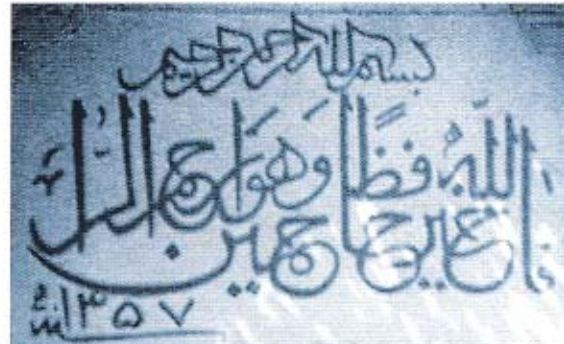 بسم الله الرحمن الرحيم
فالله خير حافظًا وهو ارحم الراحمين
سنة ١٣٥٧